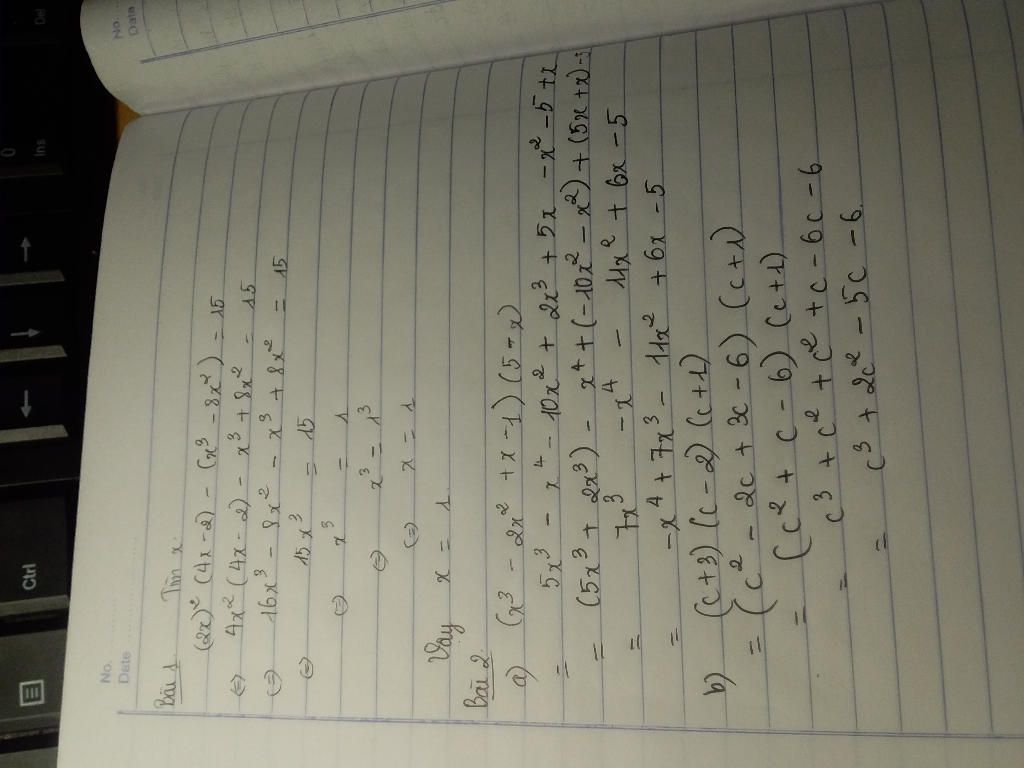 No.
Date
No.
Data
Del
0
Ins
Ctrl
Bài 1 Tìm x.
(2x)² (4x - 2) - (x³ - 8x²) = 15
(=) 4x² (4x - 2) - x³ + 8x² = 15
(=) 16x³ - 8x² - x³ + 8x² = 15
(=) 15x³ = 15
(=) x³ = 1
(=) x³ = 1³
(=) x = 1
Vậy x = 1.
Bài 2.
a) (x³ - 2x² + x - 1) (5 - x)
= 5x³ - x⁴ - 10x² + 2x³ + 5x - x² - 5 + x
= (5x³ + 2x³) - x⁴ + (-10x² - x²) + (5x + x) - 5
= 7x³ - x⁴ - 11x² + 6x - 5
= -x⁴ + 7x³ - 11x² + 6x - 5
b) (c + 3) (c - 2) (c + 1)
= (c² - 2c + 3x - 6) (c + 1)
= (c² + c - 6) (c + 1)
= c³ + c² + c² + c - 6c - 6
= c³ + 2c² - 5c - 6.